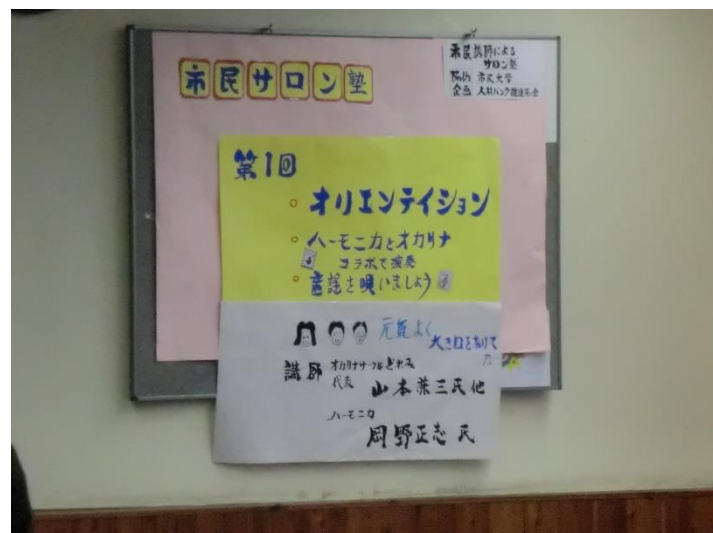 市民サロン塾
市民講師による
サロン塾
市民大学
企画 人材バンク推進委員会
第1回
・オリエンテイション
・ハーモニカとオカリナ
コラボで演奏
・童謡を唄いましょう
元気よく
大き口をあけて
講師 オカリナサークルどれみ
代表 山本兼三氏他
ハーモニカ
岡野正志 氏